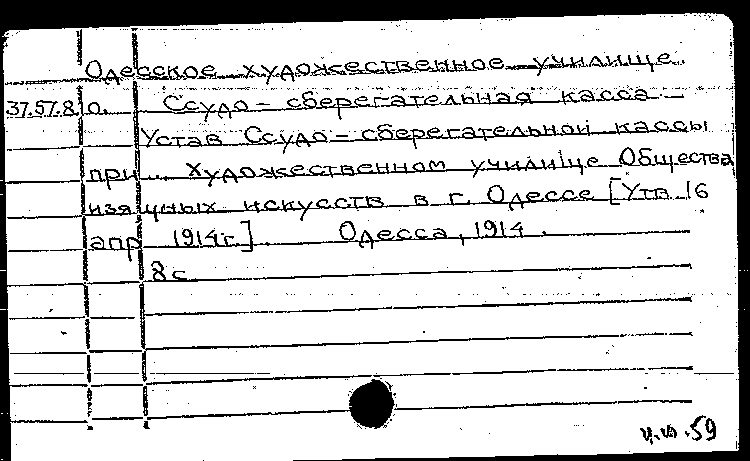 Одесское художественное училище.
37.57.8 о. Ссудо-сберегательная касса.—
Устав Ссудо-сберегательной кассы
при... художественном училище Общества
изящных искусств в г. Одессе [Утв. 16
апр. 1914г.]. Одесса, 1914.
8 с.
59